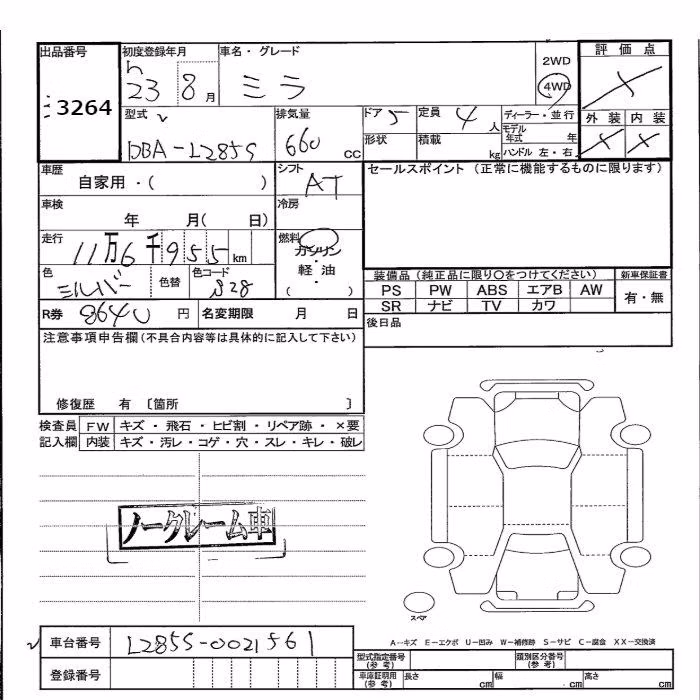 出品番号 初度登録年月 車名・グレード 2WD 評価点
3264 h23 8月 ミラ 4WD
型式 排気量 ドア 5 定員 4人 ディーラー・並行 外装 内装
DBA-L285S 660 CC 形状 積載 kg モデル年式 年
ハンドル 左・右
車歴 自家用・( ) シフト AT セールスポイント (正常に機能するものに限ります)
車検 年 月( 日) 冷房
走行 11万6千955km 燃料 ガソリン・軽油 ( )
色 シルバー 色替 色コード S28
装備品 (純正品に限り○をつけてください) 新車保証書
PS PW ABS エアB AW 有・無
SR ナビ TV カワ
R券 8640 円 名変期限 月 日 後日品
注意事項申告欄(不具合内容等は具体的に記入して下さい)
修復歴 有 〔箇所 〕
検査員 FW キズ・飛石・ヒビ割・リペア跡・×要
記入欄 内装 キズ・汚レ・コゲ・穴・スレ・キレ・破レ
ノークレーム車
スペア
車台番号 L285S-0021561
A-キズ E-エクボ U-凹み W-補修跡 S-サビ C-腐食 XX-交換済
登録番号
型式指定番号(参考) 類別区分番号(参考)
車庫証明用(参考) 長さ cm 幅 cm 高さ cm